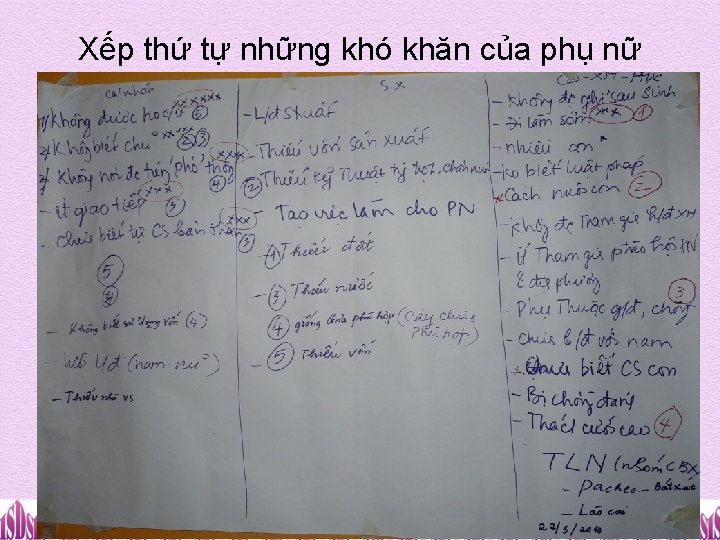 Xếp thứ tự những khó khăn của phụ nữ
Cá nhân
1/ Không được học
2/ Không biết chữ
3/ Không nói được tiếng phổ thông
- ít giao tiếp
- Chưa biết tự CS bản thân
5
- Không biết sử dụng vốn (4)
(nam-nữ)
- Thiếu nhà vs
SX
- Thiếu vốn sản xuất
- 2 Thiếu kỹ thuật
- Tạo việc làm cho PN
- 1 Thiếu đất
- 3 Thiếu nước
- 4 giống chưa phù hợp (cây chưa
phù hợp)
- 5 Thiếu vốn
- Không được nghỉ sau sinh
- Đi làm sớm xxx 1
- nhiều con
- ko biết luật pháp
Cách nuôi con 2
- Không được tham gia
- ít tham gia
ở địa phương
- Phụ thuộc gđ, chồng 3
- Chưa bđ với nam
Chưa biết CS con
- Bị chồng đánh
- Thách cưới cao 4
TLN
- Pacheo - Bát xát
- Lào cai
22/5/2010
ISDS